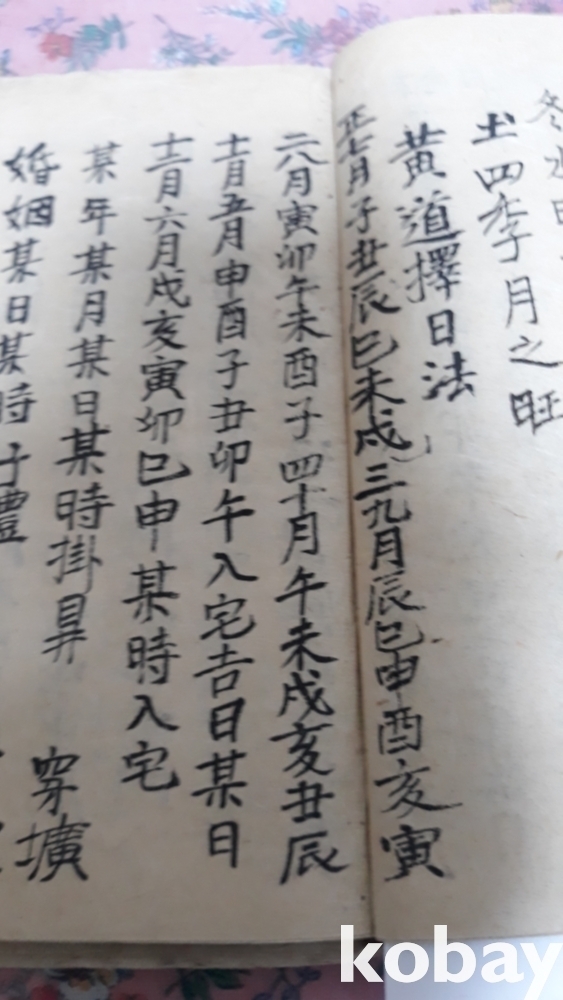 冬水日
土四季月之旺
黃道擇日法
正七月子丑辰巳未戌三九月辰巳申酉亥寅
二八月寅卯午未酉子四十月午未戌亥丑辰
十一月五月申酉子丑卯午入宅吉日某日
十二月六月戌亥寅卯巳申某時入宅
某年某月某日某時掛昇 穿壙
婚姻某日某時于禮
kobay